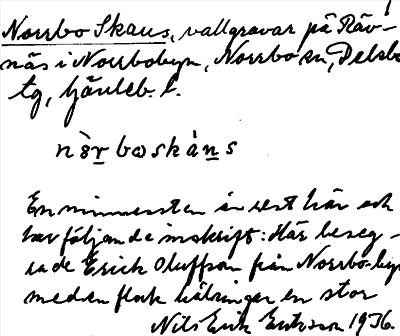 Norrbo Skans, vallgravar på Räv-
näs i Norrbobyn, Norrbo sn, Delsbo
tg, Gävleb. l.
nòrboskáns
En minnessten är rest här och
har följande inskrift: Här beseg-
rade Erich Oluffson från Norrbo-byn
med en flock hälsingar en stor
Nils Erik Eriksson 1936.